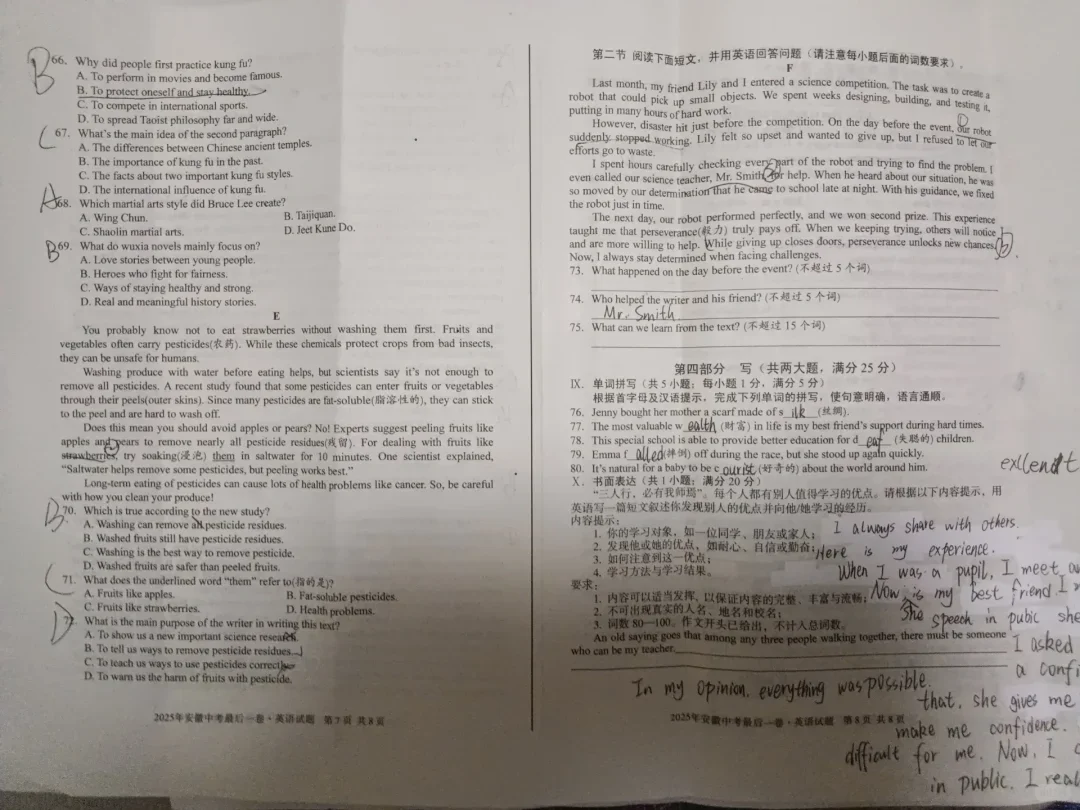 B 66. Why did people first practice kung fu?
A. To perform in movies and become famous.
B. To protect oneself and stay healthy.
C. To compete in international sports.
D. To spread Taoist philosophy far and wide.
C 67. What's the main idea of the second paragraph?
A. The differences between Chinese ancient temples.
B. The importance of kung fu in the past.
C. The facts about two important kung fu styles.
D. The international influence of kung fu.
A 68. Which martial arts style did Bruce Lee create?
A. Wing Chun. B. Taijiquan.
C. Shaolin martial arts. D. Jeet Kune Do.
B 69. What do wuxia novels mainly focus on?
A. Love stories between young people.
B. Heroes who fight for fairness.
C. Ways of staying healthy and strong.
D. Real and meaningful history stories.
E
You probably know not to eat strawberries without washing them first. Fruits and
vegetables often carry pesticides(农药). While these chemicals protect crops from bad insects,
they can be unsafe for humans.
Washing produce with water before eating helps, but scientists say it's not enough to
remove all pesticides. A recent study found that some pesticides can enter fruits or vegetables
through their peels(outer skins). Since many pesticides are fat-soluble(脂溶性的), they can stick
to the peel and are hard to wash off.
Does this mean you should avoid apples or pears? No! Experts suggest peeling fruits like
apples and pears to remove nearly all pesticide residues(残留). For dealing with fruits like
strawberries, try soaking(浸泡) them in saltwater for 10 minutes. One scientist explained,
"Saltwater helps remove some pesticides, but peeling works best."
Long-term eating of pesticides can cause lots of health problems like cancer. So, be careful
with how you clean your produce!
B 70. Which is true according to the new study?
A. Washing can remove all pesticide residues.
B. Washed fruits still have pesticide residues.
C. Washing is the best way to remove pesticide.
D. Washed fruits are safer than peeled fruits.
C 71. What does the underlined word "them" refer to(指的是)?
A. Fruits like apples. B. Fat-soluble pesticides.
C. Fruits like strawberries. D. Health problems.
D 72. What is the main purpose of the writer in writing this text?
A. To show us a new important science research.
B. To tell us ways to remove pesticide residues.
C. To teach us ways to use pesticides correctly.
D. To warn us the harm of fruits with pesticide.
2025年安徽中考最后一卷·英语试题 第7页 共8页
第二节 阅读下面短文，并用英语回答问题（请注意每小题后面的词数要求）。
F
Last month, my friend Lily and I entered a science competition. The task was to create a
robot that could pick up small objects. We spent weeks designing, building, and testing it,
putting in many hours of hard work.
However, disaster hit just before the competition. On the day before the event, our robot
suddenly stopped working. Lily felt so upset and wanted to give up, but I refused to let our
efforts go to waste.
I spent hours carefully checking every part of the robot and trying to find the problem. I
even called our science teacher, Mr. Smith for help. When he heard about our situation, he was
so moved by our determination that he came to school late at night. With his guidance, we fixed
the robot just in time.
The next day, our robot performed perfectly, and we won second prize. This experience
taught me that perseverance(毅力) truly pays off. When we keeping trying, others will notice
and are more willing to help. While giving up closes doors, perseverance unlocks new chances.
Now, I always stay determined when facing challenges.
73. What happened on the day before the event? (不超过 5 个词)
74. Who helped the writer and his friend? (不超过 5 个词)
Mr. Smith.
75. What can we learn from the text? (不超过 15 个词)
第四部分 写（共两大题，满分 25 分）
IX. 单词拼写（共 5 小题；每小题 1 分，满分 5 分）
根据首字母及汉语提示，完成下列单词的拼写，使句意明确，语言通顺。
76. Jenny bought her mother a scarf made of s ilk (丝绸).
77. The most valuable w ealth (财富) in life is my best friend's support during hard times.
78. This special school is able to provide better education for d eaf (失聪的) children.
79. Emma f alled (摔倒) off during the race, but she stood up again quickly.
80. It's natural for a baby to be c ourist (好奇的) about the world around him.
exllendt
X. 书面表达（共 1 小题；满分 20 分）
"三人行，必有我师焉"。每个人都有别人值得学习的优点。请根据以下内容提示，用
英语写一篇短文叙述你发现别人的优点并向他/她学习的经历。
内容提示：
1. 你的学习对象，如一位同学、朋友或家人；
2. 发现他或她的优点，如耐心、自信或勤奋；
3. 如何注意到这一优点；
4. 学习方法与学习结果。
要求：
1. 内容可以适当发挥，以保证内容的完整、丰富与流畅；
2. 不可出现真实的人名、地名和校名；
3. 词数 80—100。作文开头已给出，不计入总词数。
An old saying goes that among any three people walking together, there must be someone
who can be my teacher.
I always share with others.
Here is my experience.
When I was a pupil, I meet
Now is my best friend I
She speech in pubic she
I asked
a confi
In my opinion, everything was possible.
that, she gives me
make me confidence.
difficult for me. Now, I
in public. I real
2025年安徽中考最后一卷·英语试题 第8页 共8页